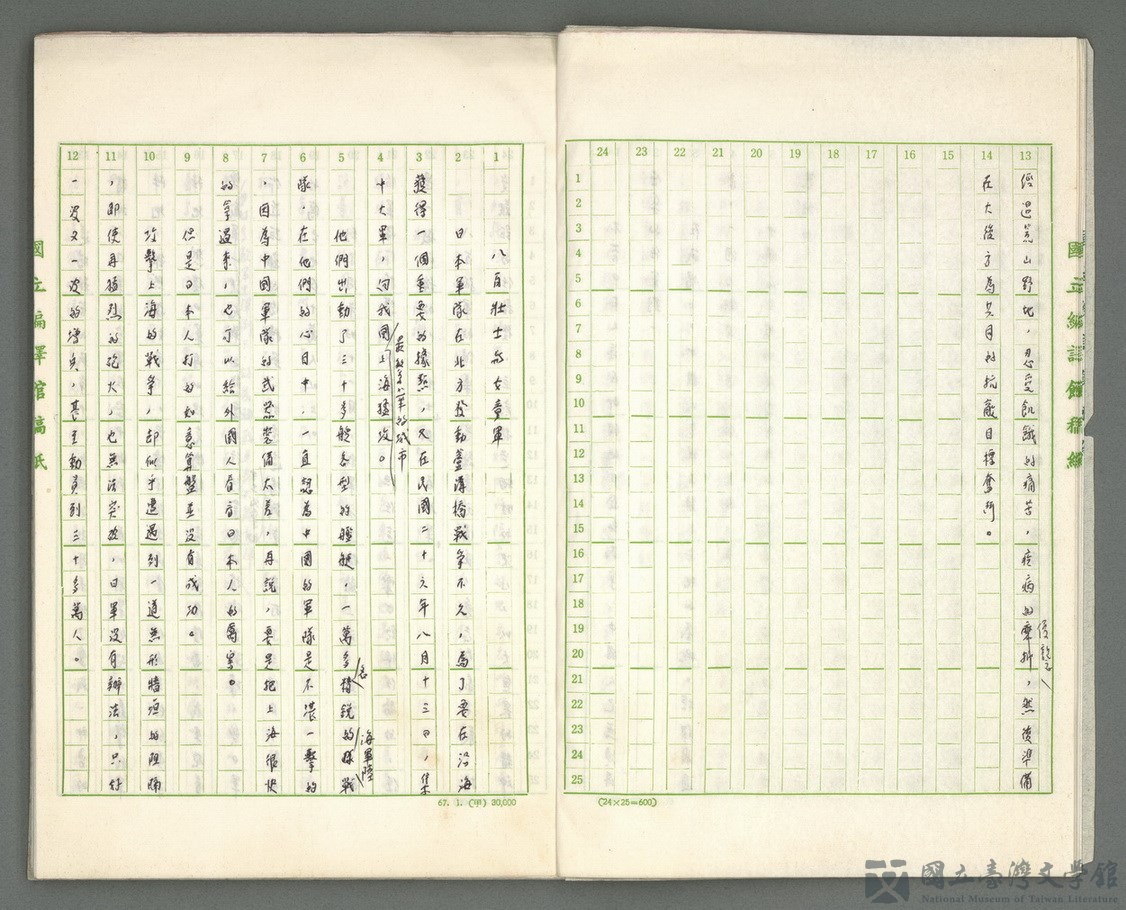 經過荒山野地，忍受飢餓的痛苦，疾病的磨折，然後準備
在大後方為共同的抗敵目標奮鬥。
八百壯士與女童軍
日本軍隊在北方發動蘆溝橋戰爭不久，為了要在沿海
獲得一個重要的據點，又在民國二十六年八月十三日，集
中大軍，向我國上海猛攻。
最的城市
他們出動了三十多艘各型的艦艇，一萬多精銳的陸戰
名
海軍陸
隊，在他們的心目中，一直認為中國的軍隊是不堪一擊的
，因為中國軍隊的武器裝備太差，再說，要是把上海很快
的拿過來，也可以給外國人看看日本人的厲害。
但是日本人打的如意算盤並沒有成功。
攻擊上海的戰爭，卻似乎遭遇到一道無形牆垣的阻隔
，即使再猛烈的砲火，也無法突破，日軍沒有辦法，只好
一次又一次的增兵，甚至動員到三十多萬人。
國立編譯館稿紙
67. 1. (甲) 30,000
(24×25=600)
13 14 15 16 17 18 19 20 21 22 23 24
1 2 3 4 5 6 7 8 9 10 11 12 13 14 15 16 17 18 19 20 21 22 23 24 25
1 2 3 4 5 6 7 8 9 10 11 12
國立臺灣文學館
National Museum of Taiwan Literature